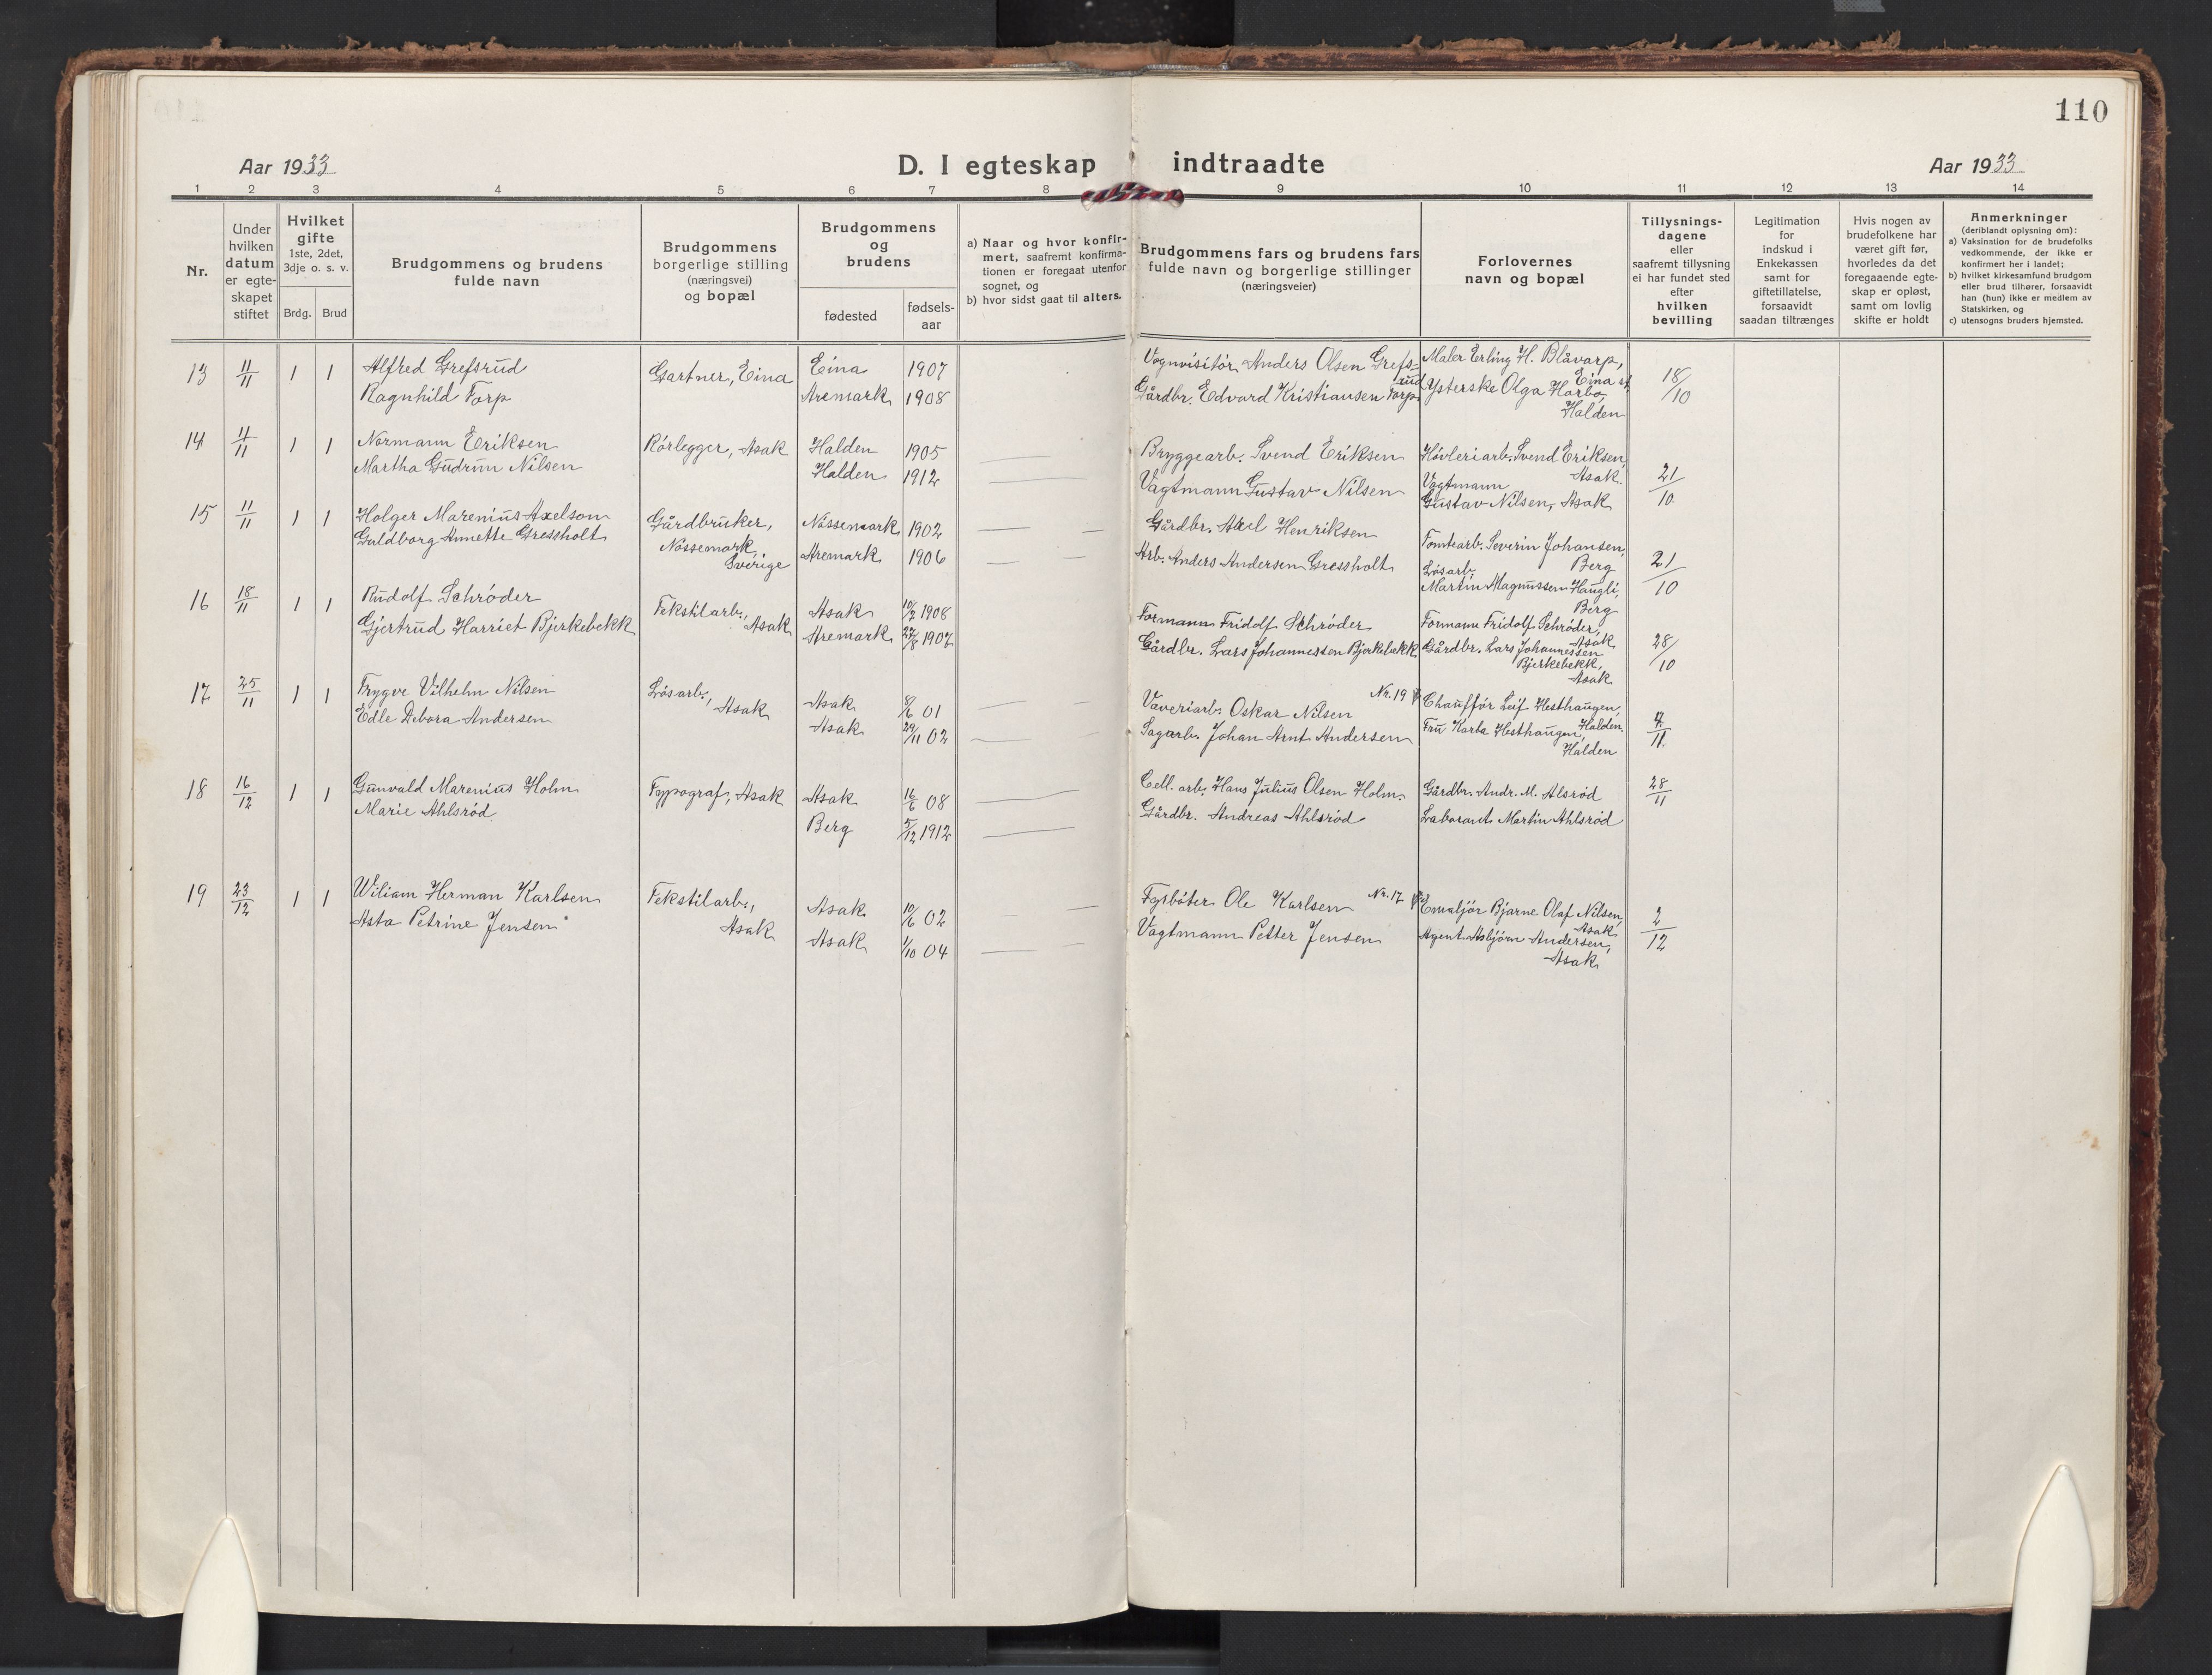 110
Aar 1933
D. I egteskap indtraadte
Aar 1933
1 2 3 4 5 6 7 8 9 10 11 12 13 14
Nr.
Under hvilken datum er egteskapet stiftet
Hvilket gifte
1ste, 2det, 3dje o. s. v.
Brdg. Brud
Brudgommens og brudens fulde navn
Brudgommens borgerlige stilling (næringsvei) og bopæl
Brudgommens og brudens
fødested
fødsels-aar
a) Naar og hvor konfirmert, saafremt konfirmationen er foregaat utenfor sognet, og
b) hvor sidst gaat til alters.
Brudgommens fars og brudens fars fulde navn og borgerlige stillinger (næringsveier)
Forlovernes navn og bopæl
Tillysningsdagene eller saafremt tillysning ei har fundet sted efter hvilken bevilling
Legitimation for indskud i Enkekassen samt for giftetillatelse, forsaavidt saadan tiltrænges
Hvis nogen av brudefolkene har været gift før, hvorledes da det foregaaende egteskap er opløst, samt om lovlig skifte er holdt
Anmerkninger
(deriblandt oplysning om):
a) Vaksination for de brudefolks vedkommende, der ikke er konfirmert her i landet;
b) hvilket kirkesamfund brudgom eller brud tilhører, forsaavidt han (hun) ikke er medlem av Statskirken, og
c) utensogns bruders hjemsted.
13 11/11 1 1 Alfred Grefsrud Gartner, Eina Eina 1907 Vognvisitör Anders Olsen Grefsrud Maler Erling H. Blåvarp, Eina st. 18/10
Ragnhild Torp Aremark 1908 Gårdbr. Edvard Kristiansen Torp Ysterske Olga Harbo, Halden
14 11/11 1 1 Normann Eriksen Rörlegger, Asak Halden 1905 Bryggearb. Svend Eriksen Hövleriarb. Svend Eriksen, Asak. 21/10
Martha Gudrun Nilsen Halden 1912 Vagtmann Gustav Nilsen Vagtmann Gustav Nilsen, Asak
15 11/11 1 1 Holger Marenius Axelson Gårdbruker, Nössemark, Sverige Nössemark 1902 Gårdbr. Axel Henriksen Tomtearb. Severin Johansen, Berg 21/10
Guldborg Annette Gressholt Aremark 1906 Arb. Anders Andersen Gressholt Lösarb. Martin Magnussen Haugli, Berg
16 18/11 1 1 Rudolf Schröder Tekstilarb., Asak Asak 10/2 1908 Formann Fridolf Schröder Formann Fridolf Schröder, Asak 28/10
Gjertrud Harriet Bjerkebekk Aremark 27/8 1907 Gårdbr. Lars Johannessen Bjerkebekk Gårdbr. Lars Johannessen Bjerkebekk, Asak
17 25/11 1 1 Trygve Vilhelm Nilsen Lösarb., Asak Asak 8/6 01 Væveriarb. Oskar Nilsen Nr. 19 Chauffør Leif Hesthaugen, Halden /11
Edle Debora Andersen Asak 29/11 02 Sagarb. Johan Arnt Andersen Fru Karla Hesthaugen, Halden
18 16/12 1 1 Gunvald Marenius Holm Typograf, Asak Asak 16/6 08 Cell. arb. Hans Julius Olsen Holm. Gårdbr. Andr. M. Alsröd 28/11
Marie Ahlsröd Berg 5/12 1912 Gårdbr. Andreas Ahlsröd Laborant Martin Ahlsröd
19 23/12 1 1 Wiliam Herman Karlsen Tekstilarb., Asak Asak 10/6 02 Fyrböter Ole Karlsen Nr. 17 Emaljör Bjarne Olaf Nilsen, Asak 2/12
Asta Petrine Jensen Asak 1/10 04 Vagtmann Petter Jensen Agent Asbjörn Andersen, Asak